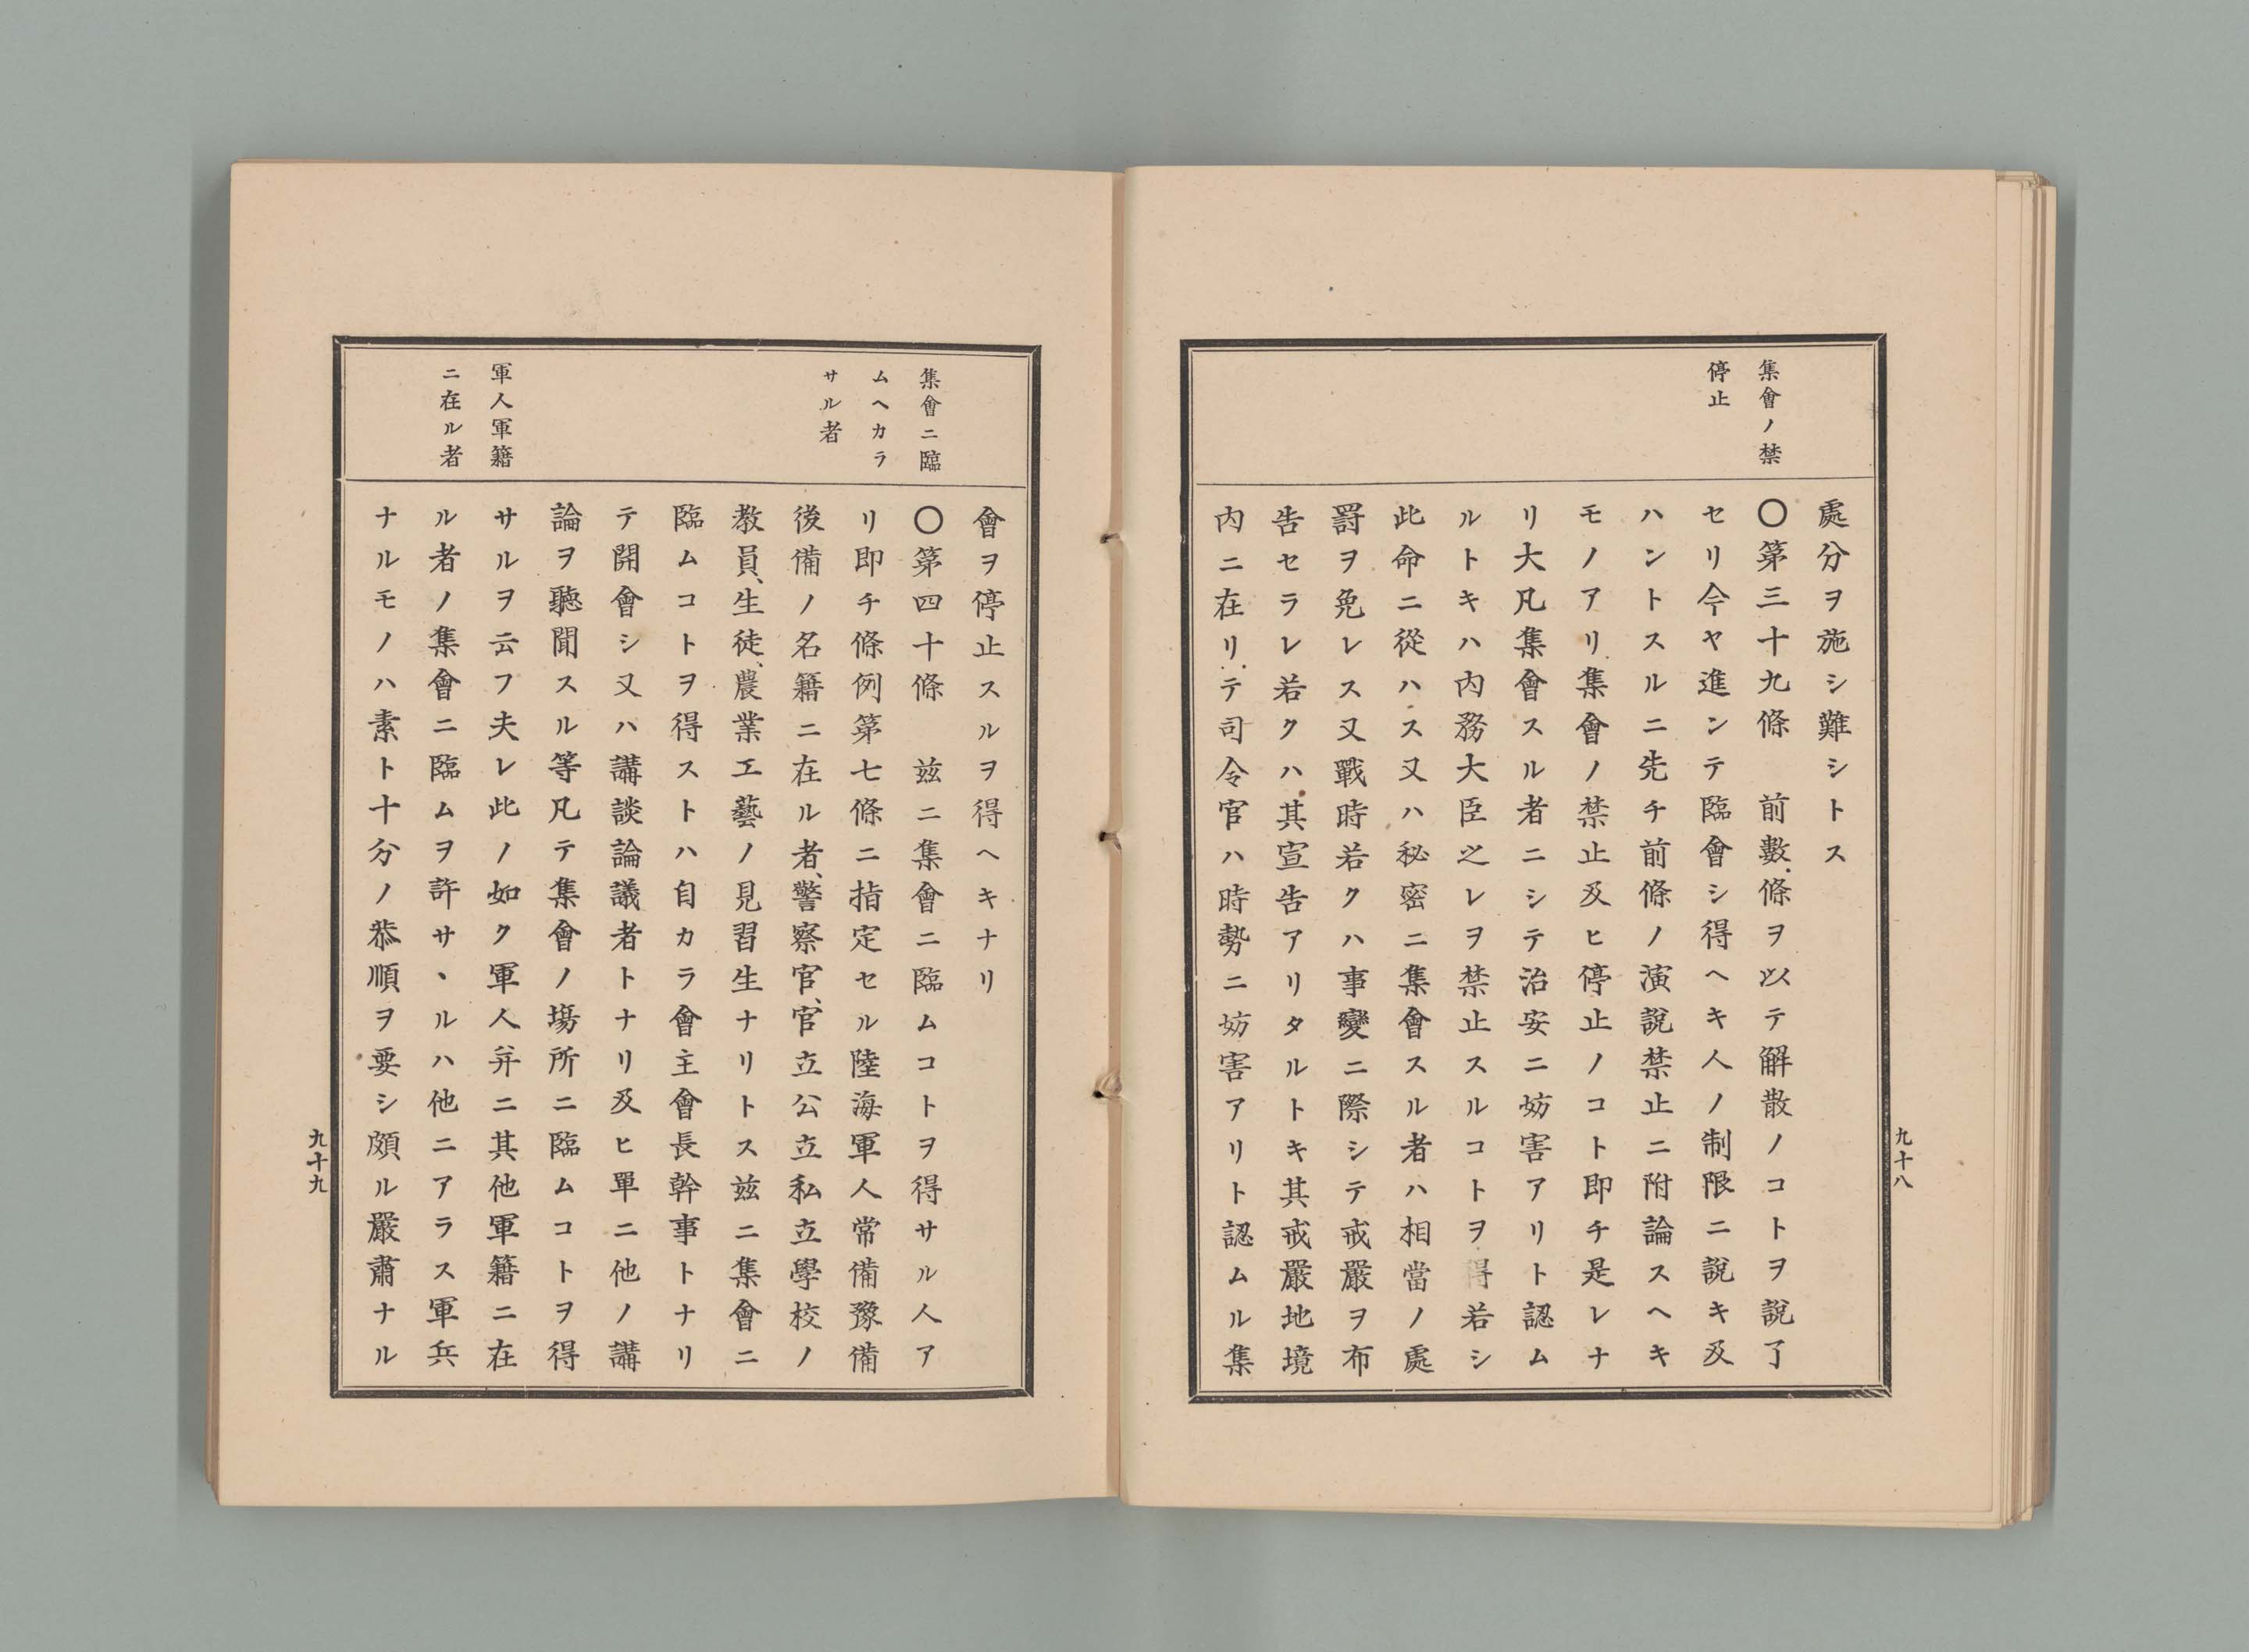 集會ノ禁
停止
處分ヲ施シ難シトス
〇第三十九條　前數條ヲ以テ解散ノコトヲ說了
セリ今ヤ進ンテ臨會シ得ヘキ人ノ制限ニ說キ及
ハントスルニ先チ前條ノ演說禁止ニ附論スヘキ
モノアリ集會ノ禁止及ヒ停止ノコト即チ是レナ
リ大凡集會スル者ニシテ治安ニ妨害アリト認ム
ルトキハ内務大臣之レヲ禁止スルコトヲ得若シ
此命ニ從ハス又ハ秘密ニ集會スル者ハ相當ノ處
罸ヲ免レス又戰時若クハ事變ニ際シテ戒嚴ヲ布
告セラレ若クハ其宣告アリタルトキ其戒嚴地境
内ニ在リテ司令官ハ時勢ニ妨害アリト認ムル集
九十八
集會ニ臨
ムヘカラ
サル者
軍人軍籍
ニ在ル者
會ヲ停止スルヲ得ヘキナリ
〇第四十條　玆ニ集會ニ臨ムコトヲ得サル人ア
リ即チ條例第七條ニ指定セル陸海軍人常備豫備
後備ノ名籍ニ在ル者、警察官、官立公立私立學校ノ
敎員、生徒、農業工藝ノ見習生ナリトス玆ニ集會ニ
臨ムコトヲ得ストハ自カラ會主會長幹事トナリ
テ開會シ又ハ講談論議者トナリ及ヒ單ニ他ノ講
論ヲ聽聞スル等凡テ集會ノ塲所ニ臨ムコトヲ得
サルヲ云フ夫レ此ノ如ク軍人幷ニ其他軍籍ニ在
ル者ノ集會ニ臨ムヲ許サヽルハ他ニアラス軍兵
ナルモノハ素ト十分ノ恭順ヲ要シ頗ル嚴肅ナル
九十九